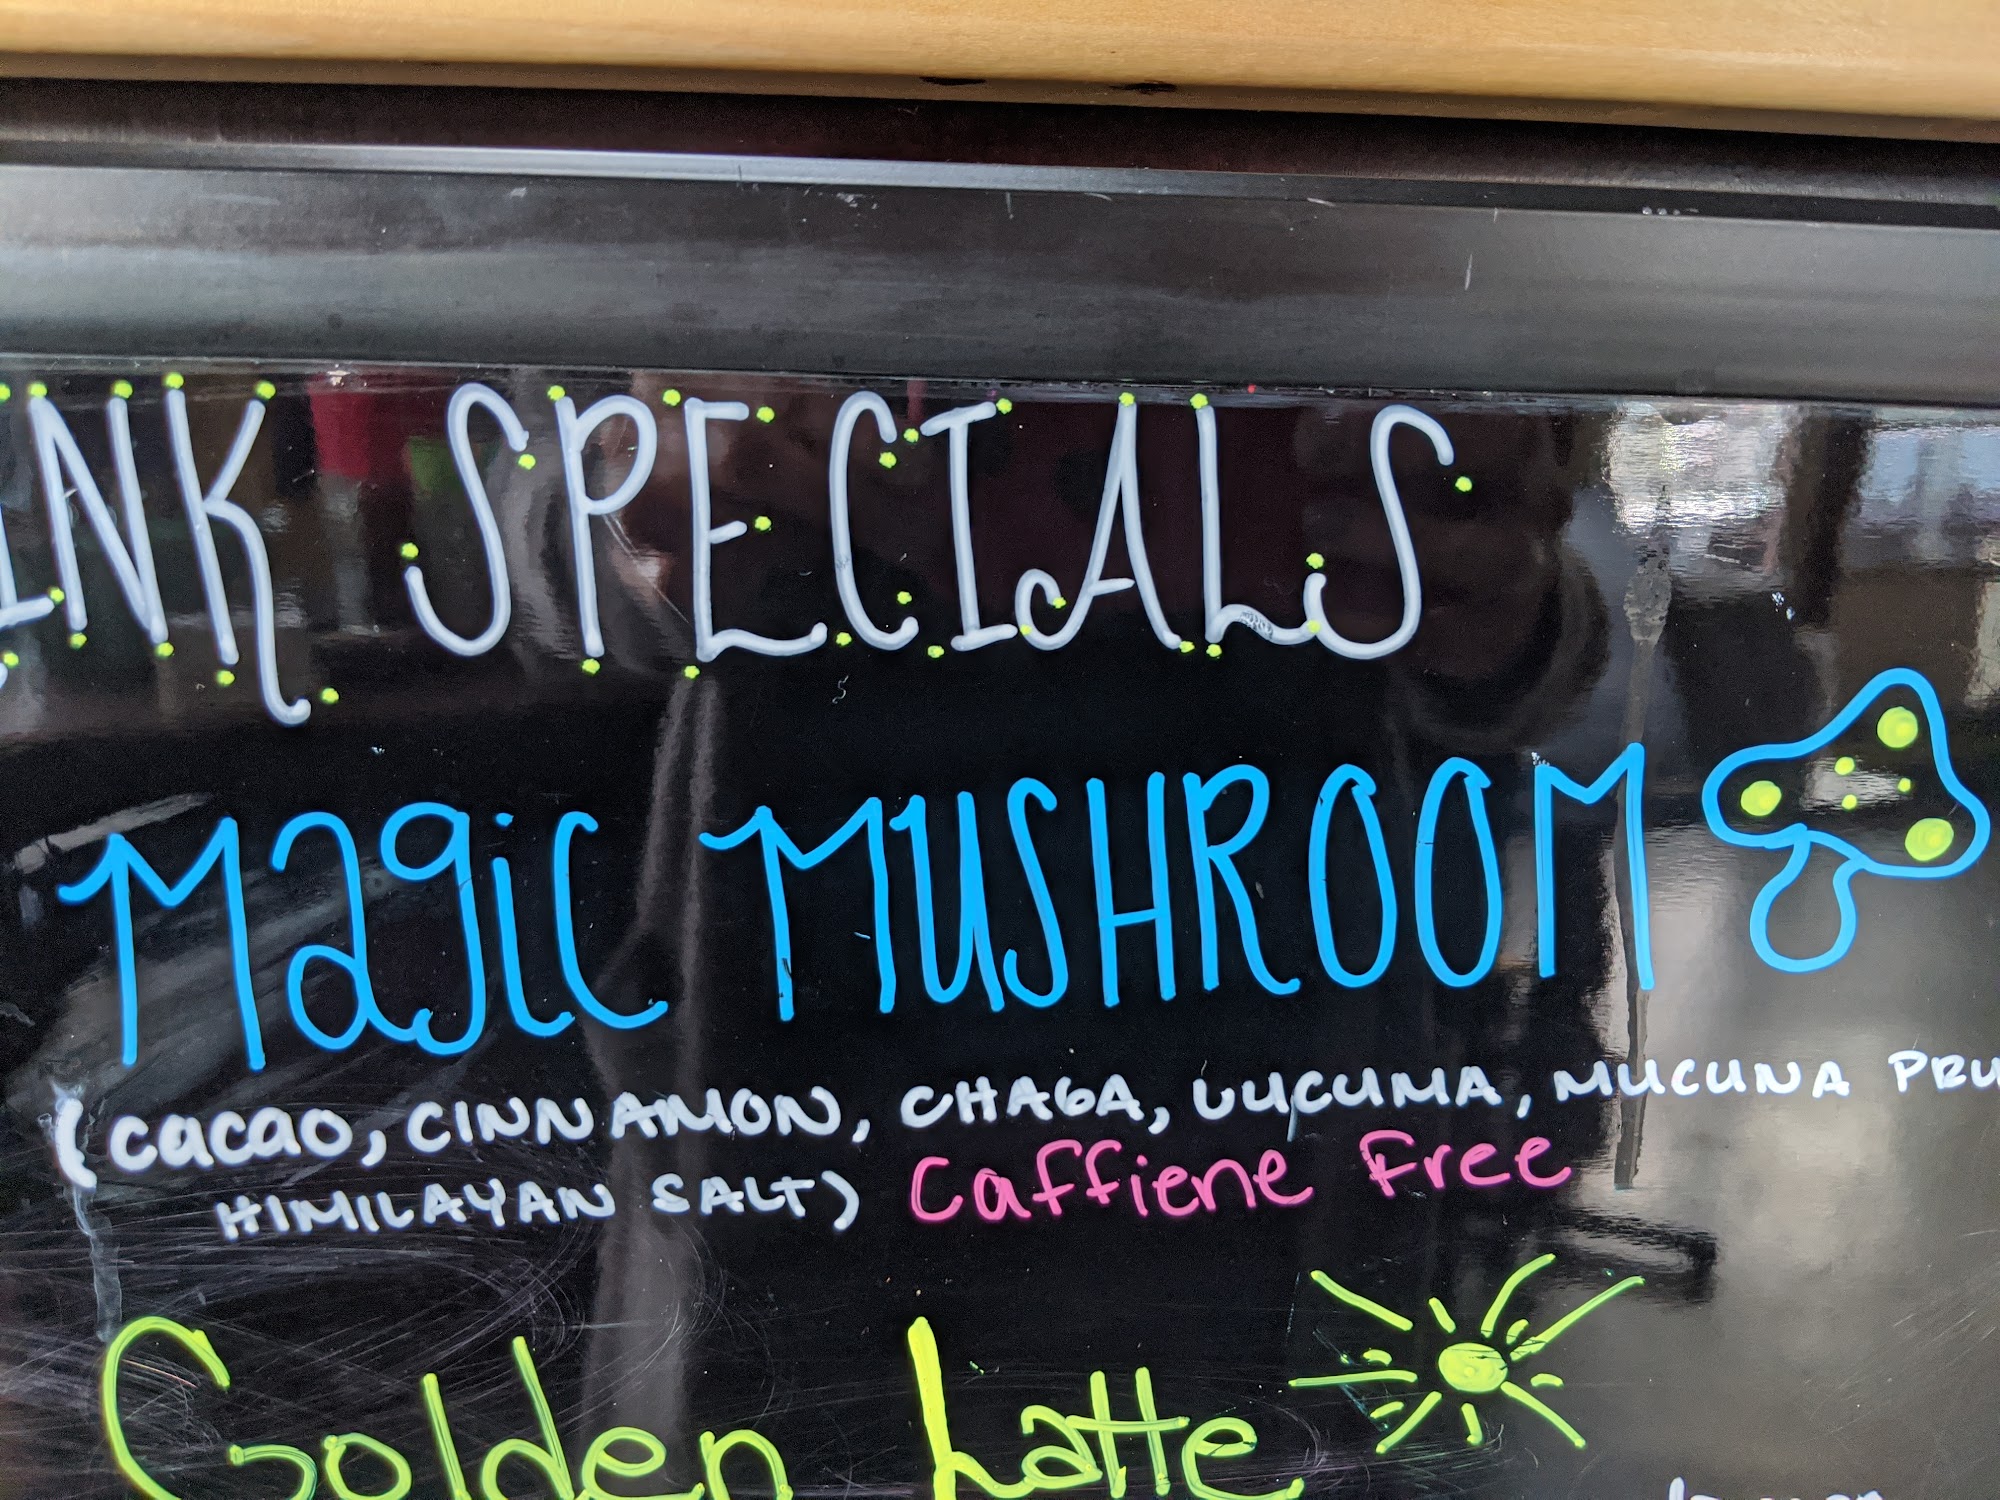 INK SPECIALS
MagiC MUSHROOM
(cacao, CINNAMON, CHAGA, LUCUMA, MUCUNA PRU
HIMILAYAN SALT) Caffiene Free
Golden Latte